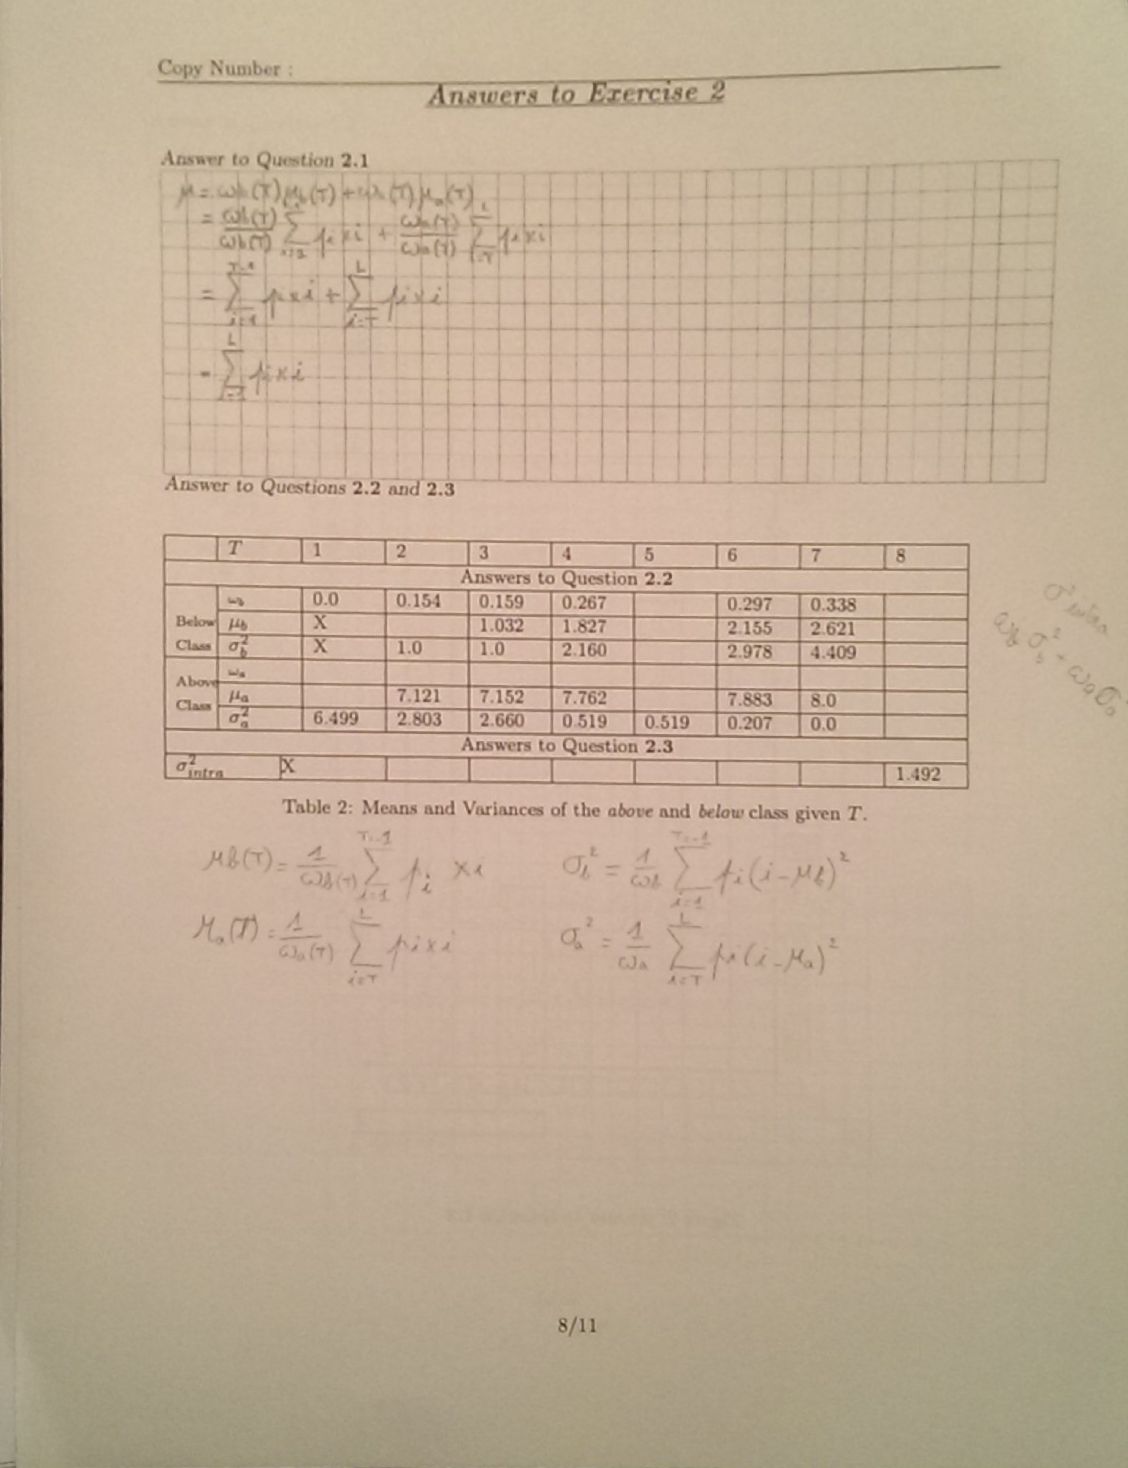 Copy Number :
Answers to Exercise 2
Answer to Question 2.1
μ = ωb(T)μb(T) + ωa(T)μa(T)
= ωb(T)/ωb(T) Σ pi×i + ωa(T)/ωa(T) Σ_{i=T}^{L} pi×i
= Σ_{i=1}^{T-1} p×i + Σ_{i=T}^{L} pi×i
= Σ_{i=1}^{L} pi×i
Answer to Questions 2.2 and 2.3
T 1 2 3 4 5 6 7 8
Answers to Question 2.2
Below Class
ωb 0.0 0.154 0.159 0.267 0.297 0.338
μb X 1.032 1.827 2.155 2.621
σ²b X 1.0 1.0 2.160 2.978 4.409
Above Class
ωa
μa 7.121 7.152 7.762 7.883 8.0
σ²a 6.499 2.803 2.660 0.519 0.519 0.207 0.0
Answers to Question 2.3
σ²intra X 1.492
σ intra
ωb σb² + ωa σa
Table 2: Means and Variances of the above and below class given T.
μb(T) = 1/ωb(T) Σ_{i=1}^{T-1} pi ×i
σb² = 1/ωb Σ_{i=1}^{T-1} pi(i-μb)²
μa(T) = 1/ωa(T) Σ_{i=T}^{L} pi×i
σa² = 1/ωa Σ_{i=T}^{L} pi(i-μa)²
8/11